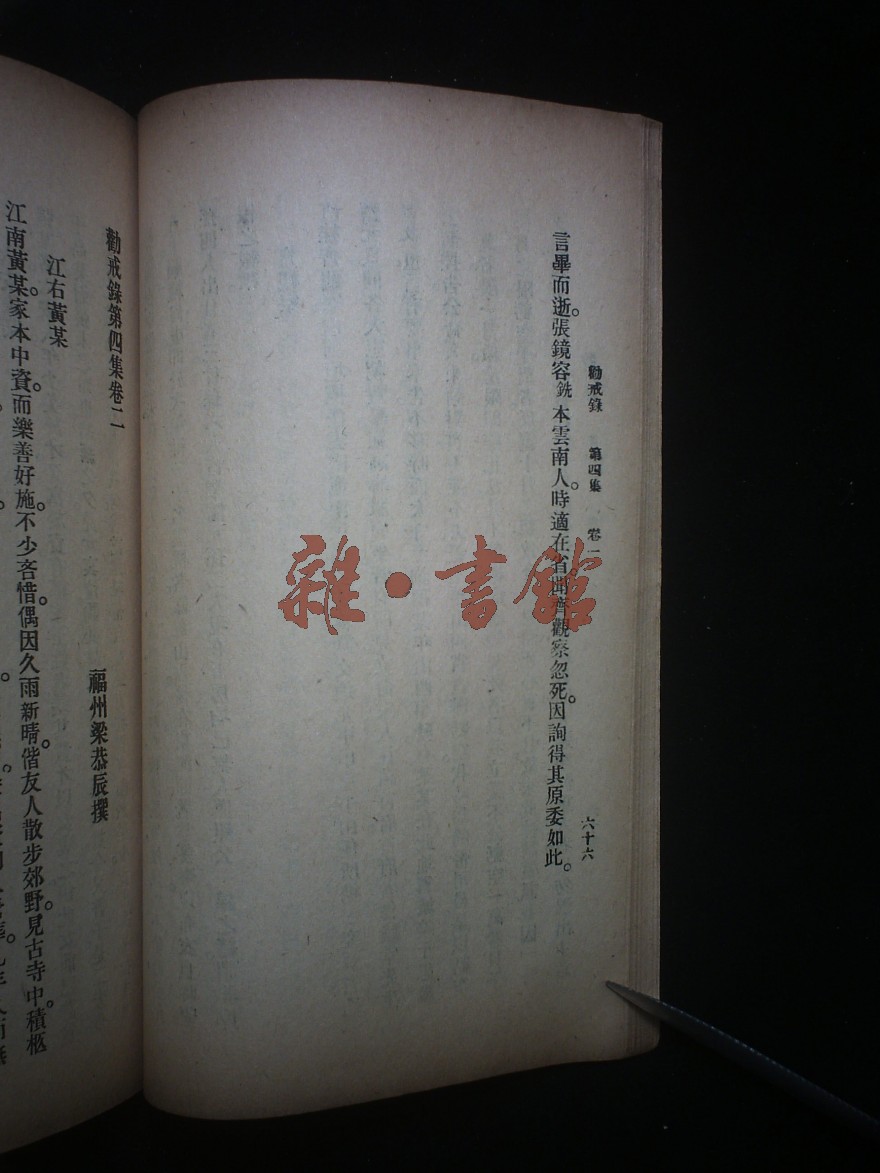 勸戒錄　第四集　卷一
六十六
言畢而逝。張鏡容銑本雲南人。時適在省聞齊觀察忽死。因詢得其原委如此。
勸戒錄第四集卷二
福州梁恭辰撰
江右黃某
江南黃某。家本中資。而樂善好施。不少吝惜。偶因久雨新晴。偕友人散步郊野。見古寺中。積柩
雜·書館